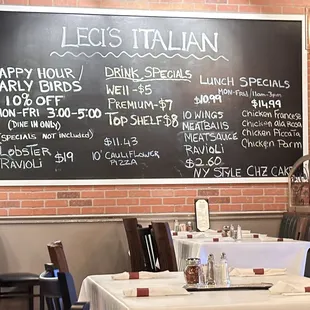 LECI'S ITALIAN
HAPPY HOUR/
EARLY BIRDS
10% OFF
MON-FRI 3:00-5:00
(DINE IN ONLY)
(SPECIALS NOT INCLUDED)
LOBSTER
RAVIOLI $19
DRINK SPECIALS
WELL -$5
PREMIUM-$7
TOP SHELF $8
$11.43
10" CAULIFLOWER
PIZZA
LUNCH SPECIALS
MON-FRI/11am-3pm
$10.99
10 WINGS
MEATBALLS
MEATSAUCE
RAVIOLI
$2.60
NY STYLE CHZ CAKE
$14.99
CHICKEN FRANCESE
CHICKEN ala ROSA
CHICKEN PICCATA
CHICKEN PARM